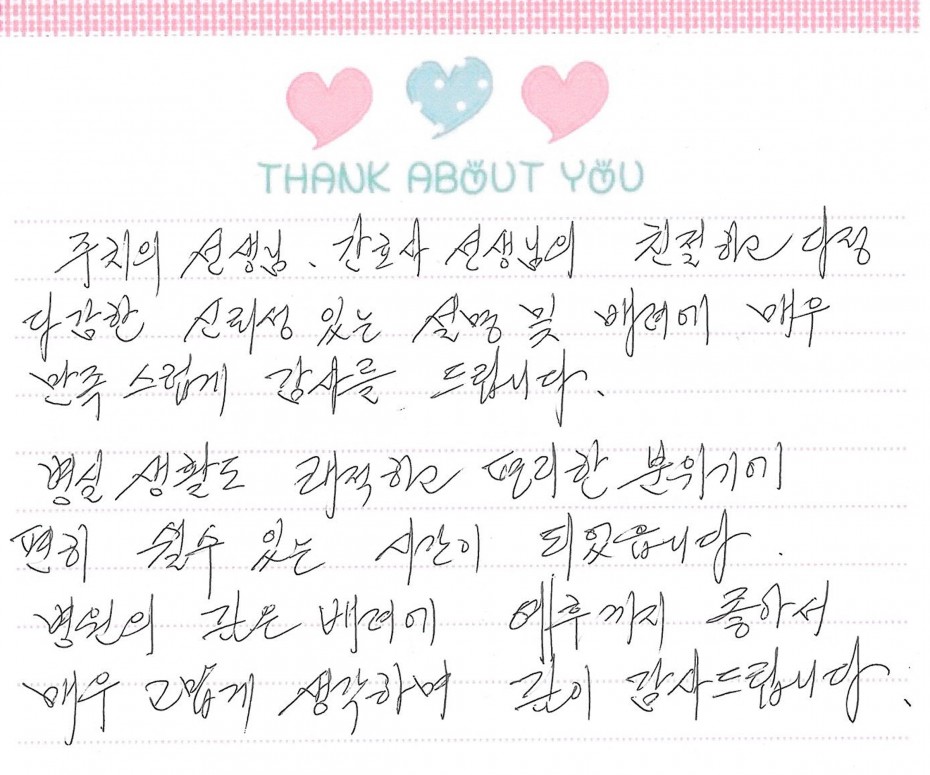 THANK ABOUT YOU
주치의 선생님, 간호사 선생님의 친절하고 다정
다감한 신뢰성 있는 설명 및 배려에 매우
만족스럽게 감사를 드립니다.
병실 생활도 쾌적하고 편리한 분위기에
편히 쉴수 있는 시간이 되었읍니다.
병원의 큰은 배려에 예후까지 좋아서
매우 고맙게 생각하며 큰이 감사드립니다.